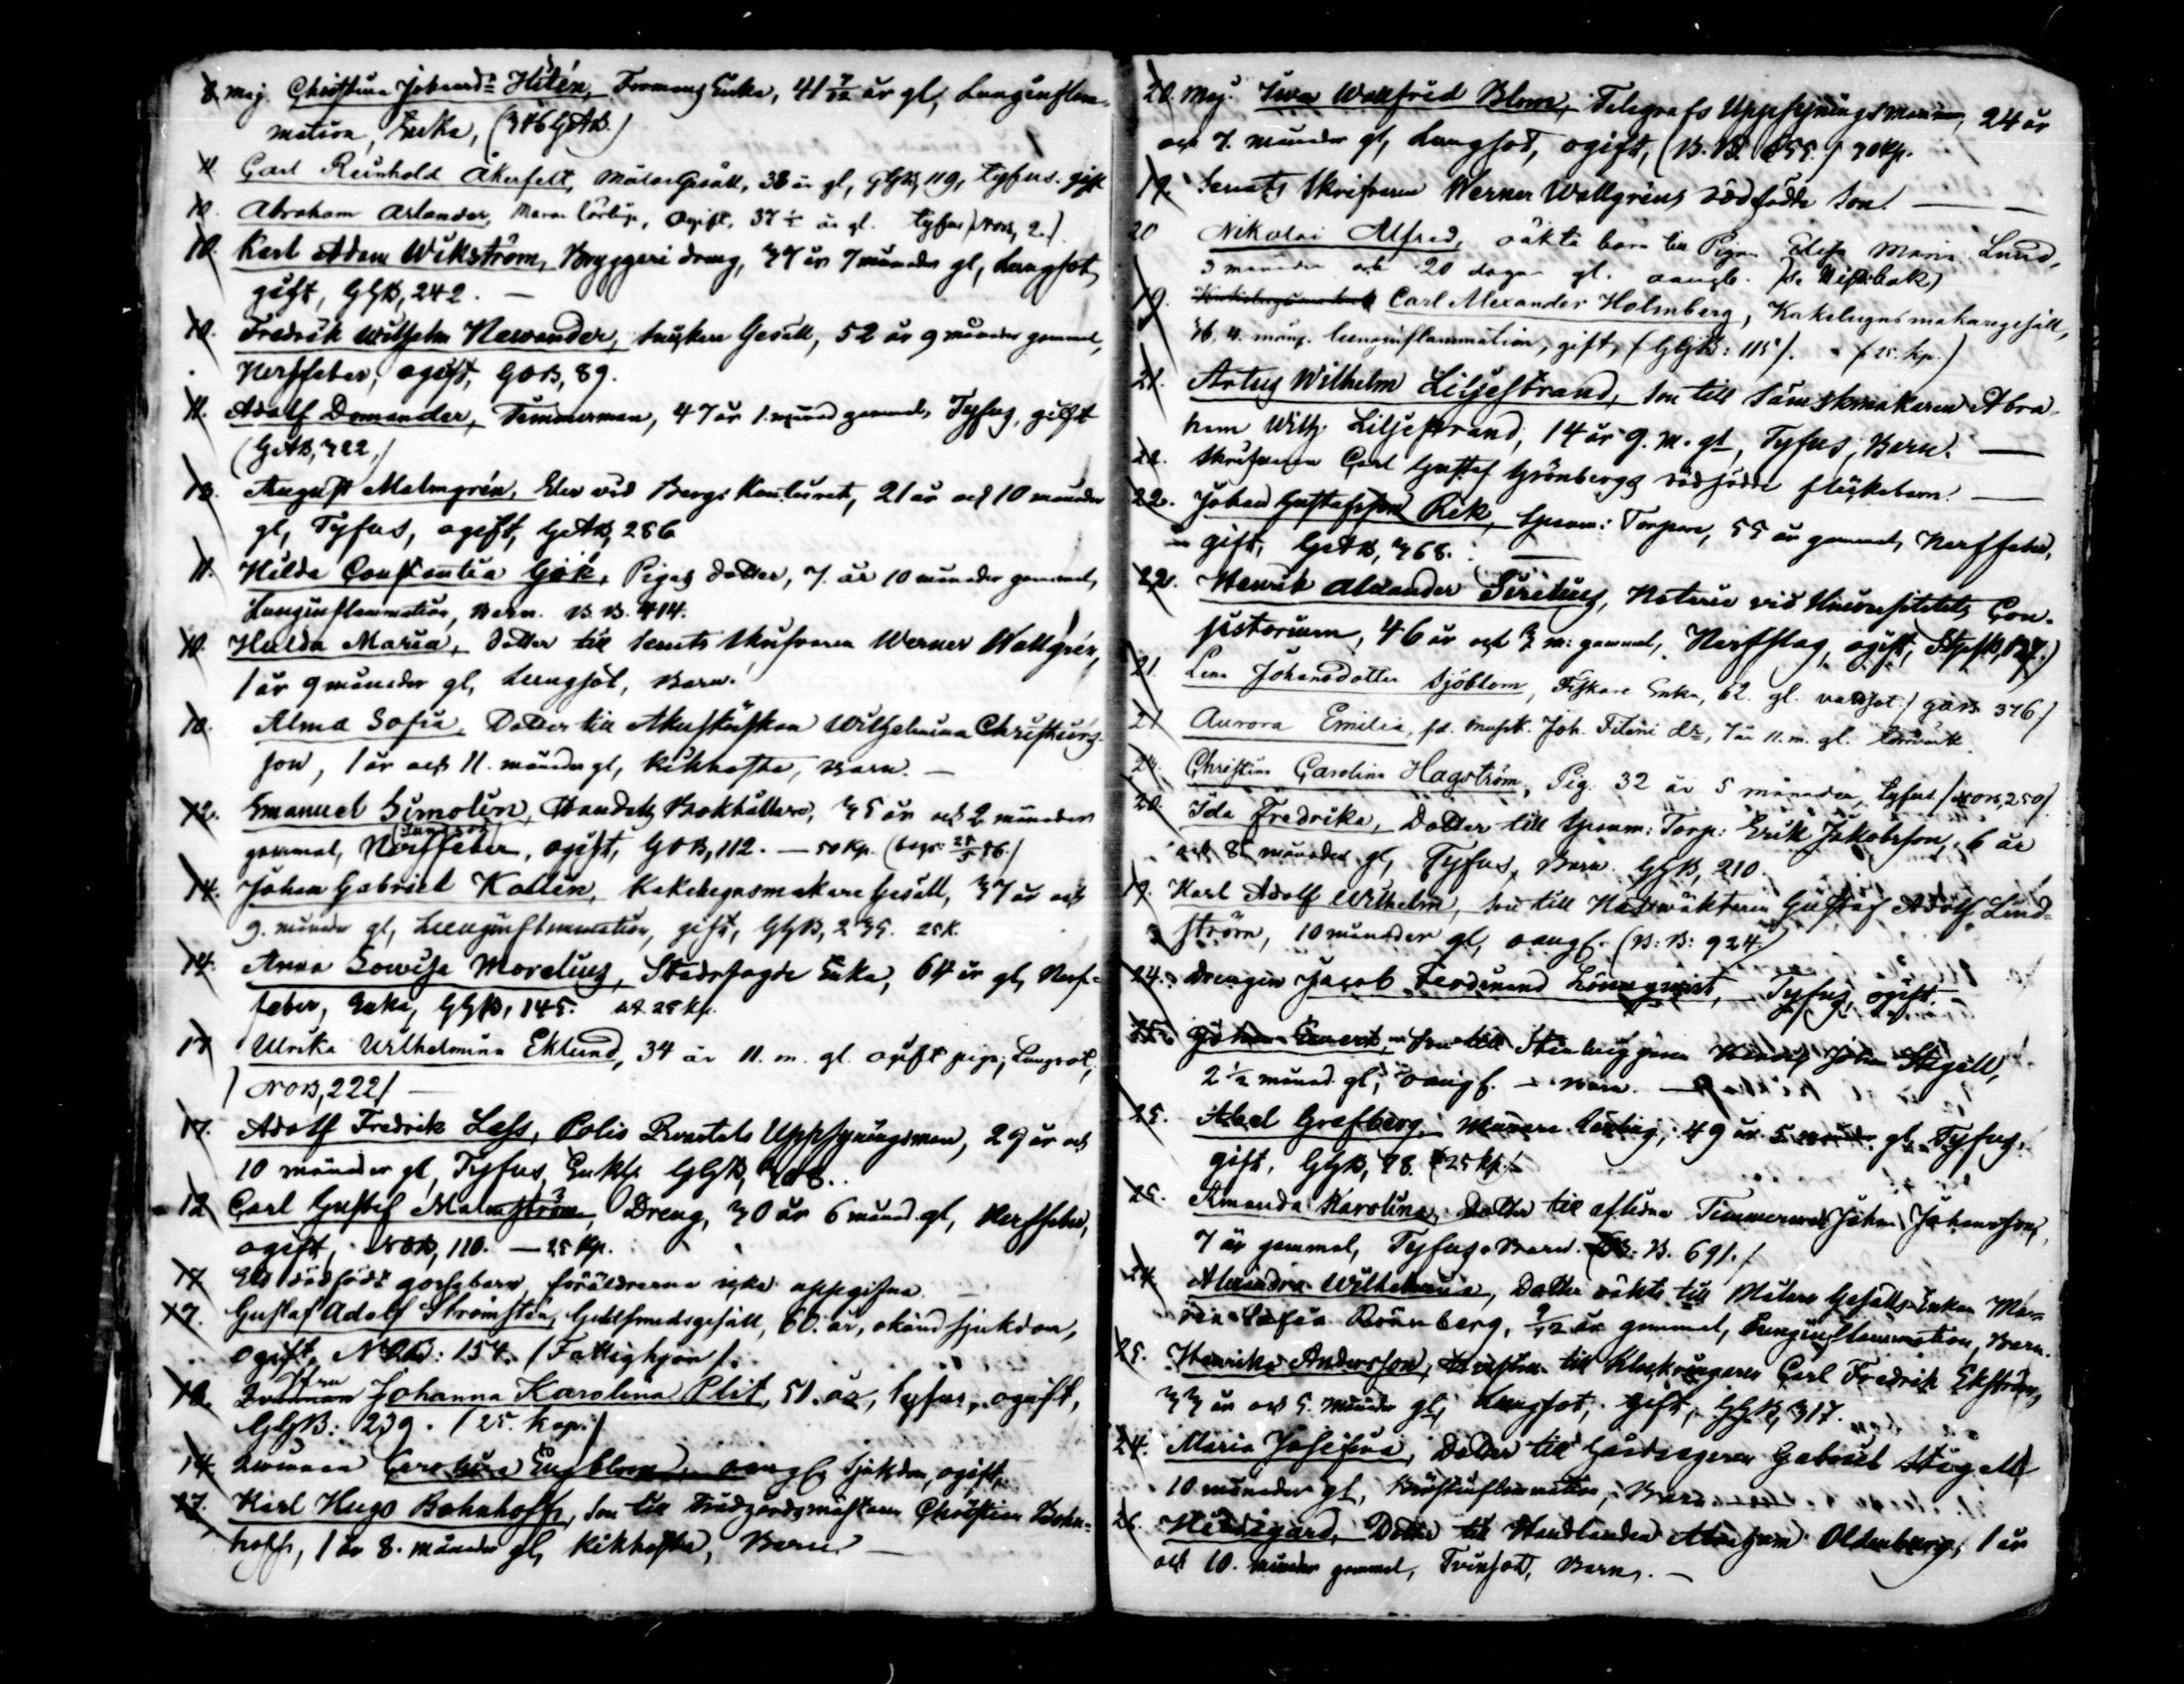 8 Maj. Christina Johansd: Hitén, Formans Enka, 41 7/12 år gl, Lunginflam-
mation, Enka, (346 GAB.)
11. Carl Reinhold Åkerfelt, Målaregesäll, 38 år gl, GGB, 119, tyfus. gift
10. Abraham Arlander, Lärling, Ogift, 37 år gl. tyfus
10. Karl Adam Wikström, Bryggeri dreng, 37 år 7 månader gl, Lungsot,
gift, GGB, 242. —
10. Fredrik Wilhelm Newander, Snickare Gesäll, 52 år 9 månader gammal,
Nerffeber, ogift, GOB, 89.
11. Adolf Domander, Timmerman, 47 år 1 månad gammal, Tyfus, gift
(GAB, 322,)
13. August Malmgrén, Elev vid Bergs Kontoret, 21 år och 10 månader
gl, Tyfus, ogift, GAB, 286
11. Hilda Constantia Gök, Pigas dotter, 7 år 10 månader gammal,
Lunginflammation, Barn. B. B. 414.
10. Hulda Maria, dotter till Senats Skrifvaren Werner Wallgrén,
1 år 9 månader gl, Lungsot, Barn.
10. Alma Sofia, Dotter till Wilhelmina Christians-
son, 1 år och 11. månader gl, Kikhosta, Barn. —
12. Emanuel Simolin, Handels Bokhållare, 35 år och 2 månader
gammal, Nerffeber, ogift, GOB, 112. — 50 Kp.
14. Johan Gabriel Kallin, Kakelugnsmakare Gesäll, 37 år och
9. månader gl, Lunginflammation, gift, GGB, 235. 25 K.
14. Anna Lowisa Morelius, Stadsfogde Enka, 64 år gl, Nerf-
feber, Enka, GGB, 145. 25 Kp.
17 Ulrika Wilhelmina Eklund, 34 år 11. m. gl. ogift piga, Lungsot,
/NOB, 222/ —
17. Adolf Fredrik Lass, Polis Uppsyningsman, 29 år och
10 månader gl, Tyfus, Enkl. GGB, 308.
12 Carl Gustaf Malmström, Dreng, 30 år 6 månad. gl, Nerffeber,
ogift, NOB, 110. — 25 Kp.
17 Ett dödfödt gossebarn, föräldrarna icke uppgifna. —
17. Gustaf Adolf Strömsten, Guldsmedsgesäll, 60. år, okänd sjukdom,
ogift, 154. /Fattighjon/.
18. Johanna Karolina Plit, 51. år, tyfus, ogift,
GGB: 239. /25. kop./
14. Qvinnan Carolina Engblom, oangf. Sjukdom, ogift,
17. Karl Hugo Bohnhoff, Son till Trädgårdsmästaren Christian Bohn-
hoff, 1 år 8. månader gl, Kikhosta, Barn. —
20. Maj. Iwar Wallfrid Blom, Telegrafs Uppsyningsmannen, 24 år
och 7. månader gl, Lungsot, ogift, (B. B. 655.) 30 Kp.
19. Senats Skrifvaren Werner Wallgréns dödfödde Son. —
20 Nikolai Alfred, oäkta barn till Pigan Maria Lund,
3 månader och 20 dagar gl. oangb.
19. Carl Alexander Holmberg, Kakelugnsmakaregesäll,
36, 4. mång. lunginflammation, gift, (GGB: 115). (25. kp.)
21. Artus Wilhelm Liljestrand, Son till Sämskmakaren Abra-
ham Wilh. Liljestrand, 14 år 9. m. gl, Tyfus, Barn. —
22. Skrifvaren Carl Gustaf Grönbergs dödfödde flickebarn. —
22. Johan Gustafsson Rek, Torpare, 55 år gammal, Nerffeber,
gift, GAB, 368. —
22. Henrik Alexander Sirelius, Notarie vid Universitetets Con-
sistorium, 46 år och 3 m: gammal, Nerfslag, ogift,
21. Lena Johansdotter Sjöblom, Fiskare Enka, 62. gl. vattsot. /GAB 376/
21 Aurora Emilia, Joh. dr, 7 år 11. m. gl.
24. Christina Carolina Hagström, Pig. 32 år 5 månader, tyfus /NOB, 250/
20. Ida Fredrika, Dotter till Torp: Erik Jakobsson, 6 år
och 8 månader gl, Tyfus, Barn. GGB, 210.
19. Karl Adolf Wilhelm, Son till Gustaf Adolf Lind-
ström, 10 månader gl, oangf. (B: B: 924.)
24. Drengen Jacob Ferdinand Lönnqvist, Tyfus, ogift. —
25. Johan Evert, Son till Johan Stigell,
2 1/2 månad. gl, oangf. — Barn. —
25. Abel Grefberg, Murare Lärling, 49 år 5 månader gl, Tyfus,
gift, GGB, 98. (25 kp.)
25. Amanda Karolina, Dotter till aflidne Timmerman Johan Johansson,
7 år gammal, Tyfus. Barn. B: B. 691./
24. Alexandra Wilhelmina, Dotter oäkta till Målare Gesälls Enkan Ma-
ria Sofia Rönnberg, 9/12 år gammal, Lunginflammation, Barn.
25. Henrika Andersson, Hustru till Klockringaren Carl Fredrik Ekström,
33 år och 5. månader gl, Lungsot, gift, GGB, 317.
24. Maria Josefina, Dotter till Gårdsegaren Gabriel Stigell
10 månader gl, Bröstinflammation, Barn.
26. Hildegard, Dotter till Handlanden Abraham Oldenburg, 1 år
och 10. månader gammal, Tvinsot, Barn. —